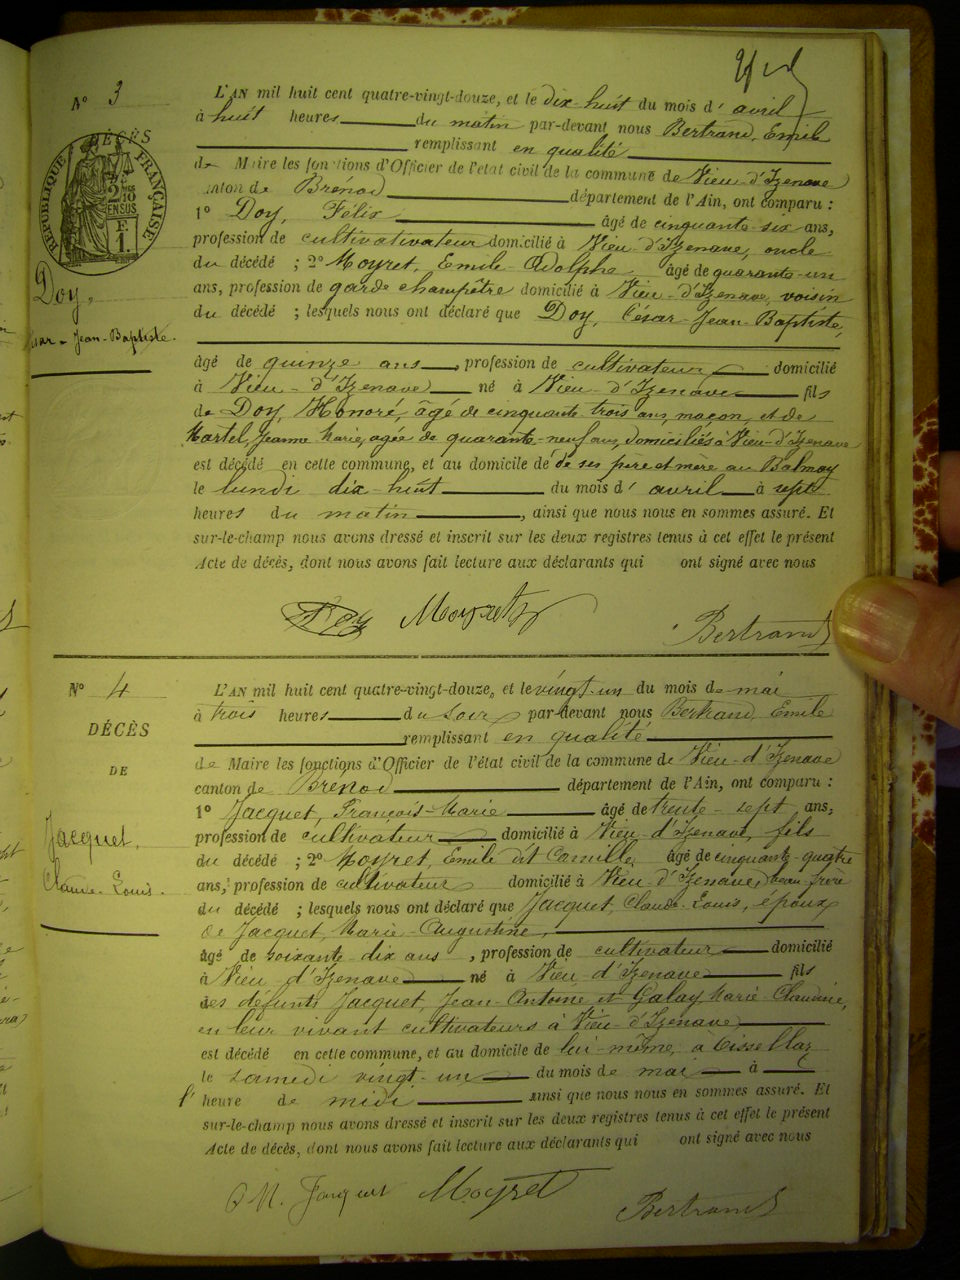 N° 3
L'AN mil huit cent quatre-vingt-douze, et le dix-huit du mois d' avril
à huit heures du matin par-devant nous Bertrand, Emile
remplissant en qualité
de Maire les fonctions d'Officier de l'état civil de la commune de Vieu-d'Izenave
canton de Brenod département de l'Ain, ont comparu :
1° Doy, Félix âgé de cinquante-six ans,
profession de cultivativateur domicilié à Vieu-d'Izenave, oncle
du décédé ; 2° Moyret, Emile-Adolphe âgé de quarante-un
ans, profession de garde champêtre domicilié à Vieu-d'Izenave, voisin
du décédé ; lesquels nous ont déclaré que Doy, César-Jean-Baptiste,
âgé de quinze ans, profession de cultivateur domicilié
à Vieu-d'Izenave né à Vieu-d'Izenave fils
de Doy, Honoré, âgé de cinquante trois ans, maçon, et de
Martel, Jeanne Marie, agée de quarante-neuf ans, domiciliés à Vieu-d'Izenave
est décédé en cette commune, et au domicile de de ses père et mère au Balmay
le lundi dix-huit du mois d' avril à sept
heures du matin, ainsi que nous nous en sommes assuré. Et
sur-le-champ nous avons dressé et inscrit sur les deux registres tenus à cet effet le présent
Acte de décès, dont nous avons fait lecture aux déclarants qui ont signé avec nous
Doy Moyret Bertrand
DÉCÈS
RÉPUBLIQUE FRANÇAISE
2/10
EN SUS
F.
1.
Doy,
César-Jean-Baptiste.
N° 4
DÉCÈS
DE
Jacquet,
Claude-Louis.
L'AN mil huit cent quatre-vingt-douze, et le vingt-un du mois de mai
à trois heures du soir par-devant nous Bertrand, Emile
remplissant en qualité
de Maire les fonctions d'Officier de l'état civil de la commune de Vieu-d'Izenave
canton de Brenod département de l'Ain, ont comparu :
1° Jacquet, François-Marie âgé de trente-sept ans,
profession de cultivateur domicilié à Vieu-d'Izenave, fils
du décédé ; 2° Moyret, Emile dit Camille, âgé de cinquante-quatre
ans, profession de cultivateur domicilié à Vieu-d'Izenave, beau frère
du décédé ; lesquels nous ont déclaré que Jacquet, Claude-Louis, époux
de Jacquet, Marie-Augustine,
âgé de soixante-dix ans, profession de cultivateur domicilié
à Vieu d'Izenave né à Vieu-d'Izenave fils
des défunts Jacquet, Jean-Antoine et Galay Marie-Claudine,
en leur vivant cultivateurs à Vieu-d'Izenave
est décédé en cette commune, et au domicile de lui-même, à
le samedi vingt-un du mois de mai à
l'heure de midi ainsi que nous nous en sommes assuré. Et
sur-le-champ nous avons dressé et inscrit sur les deux registres tenus à cet effet le présent
Acte de décès, dont nous avons fait lecture aux déclarants qui ont signé avec nous
Jacquet Moyret Bertrand